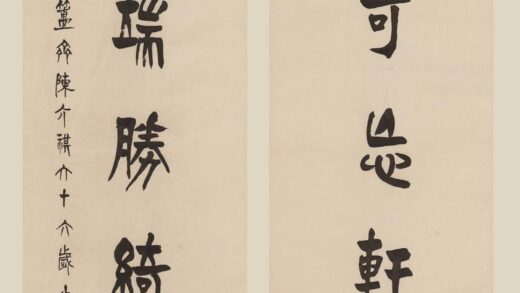 可忘軒
端勝綺
簠齋陳介祺六十六歲